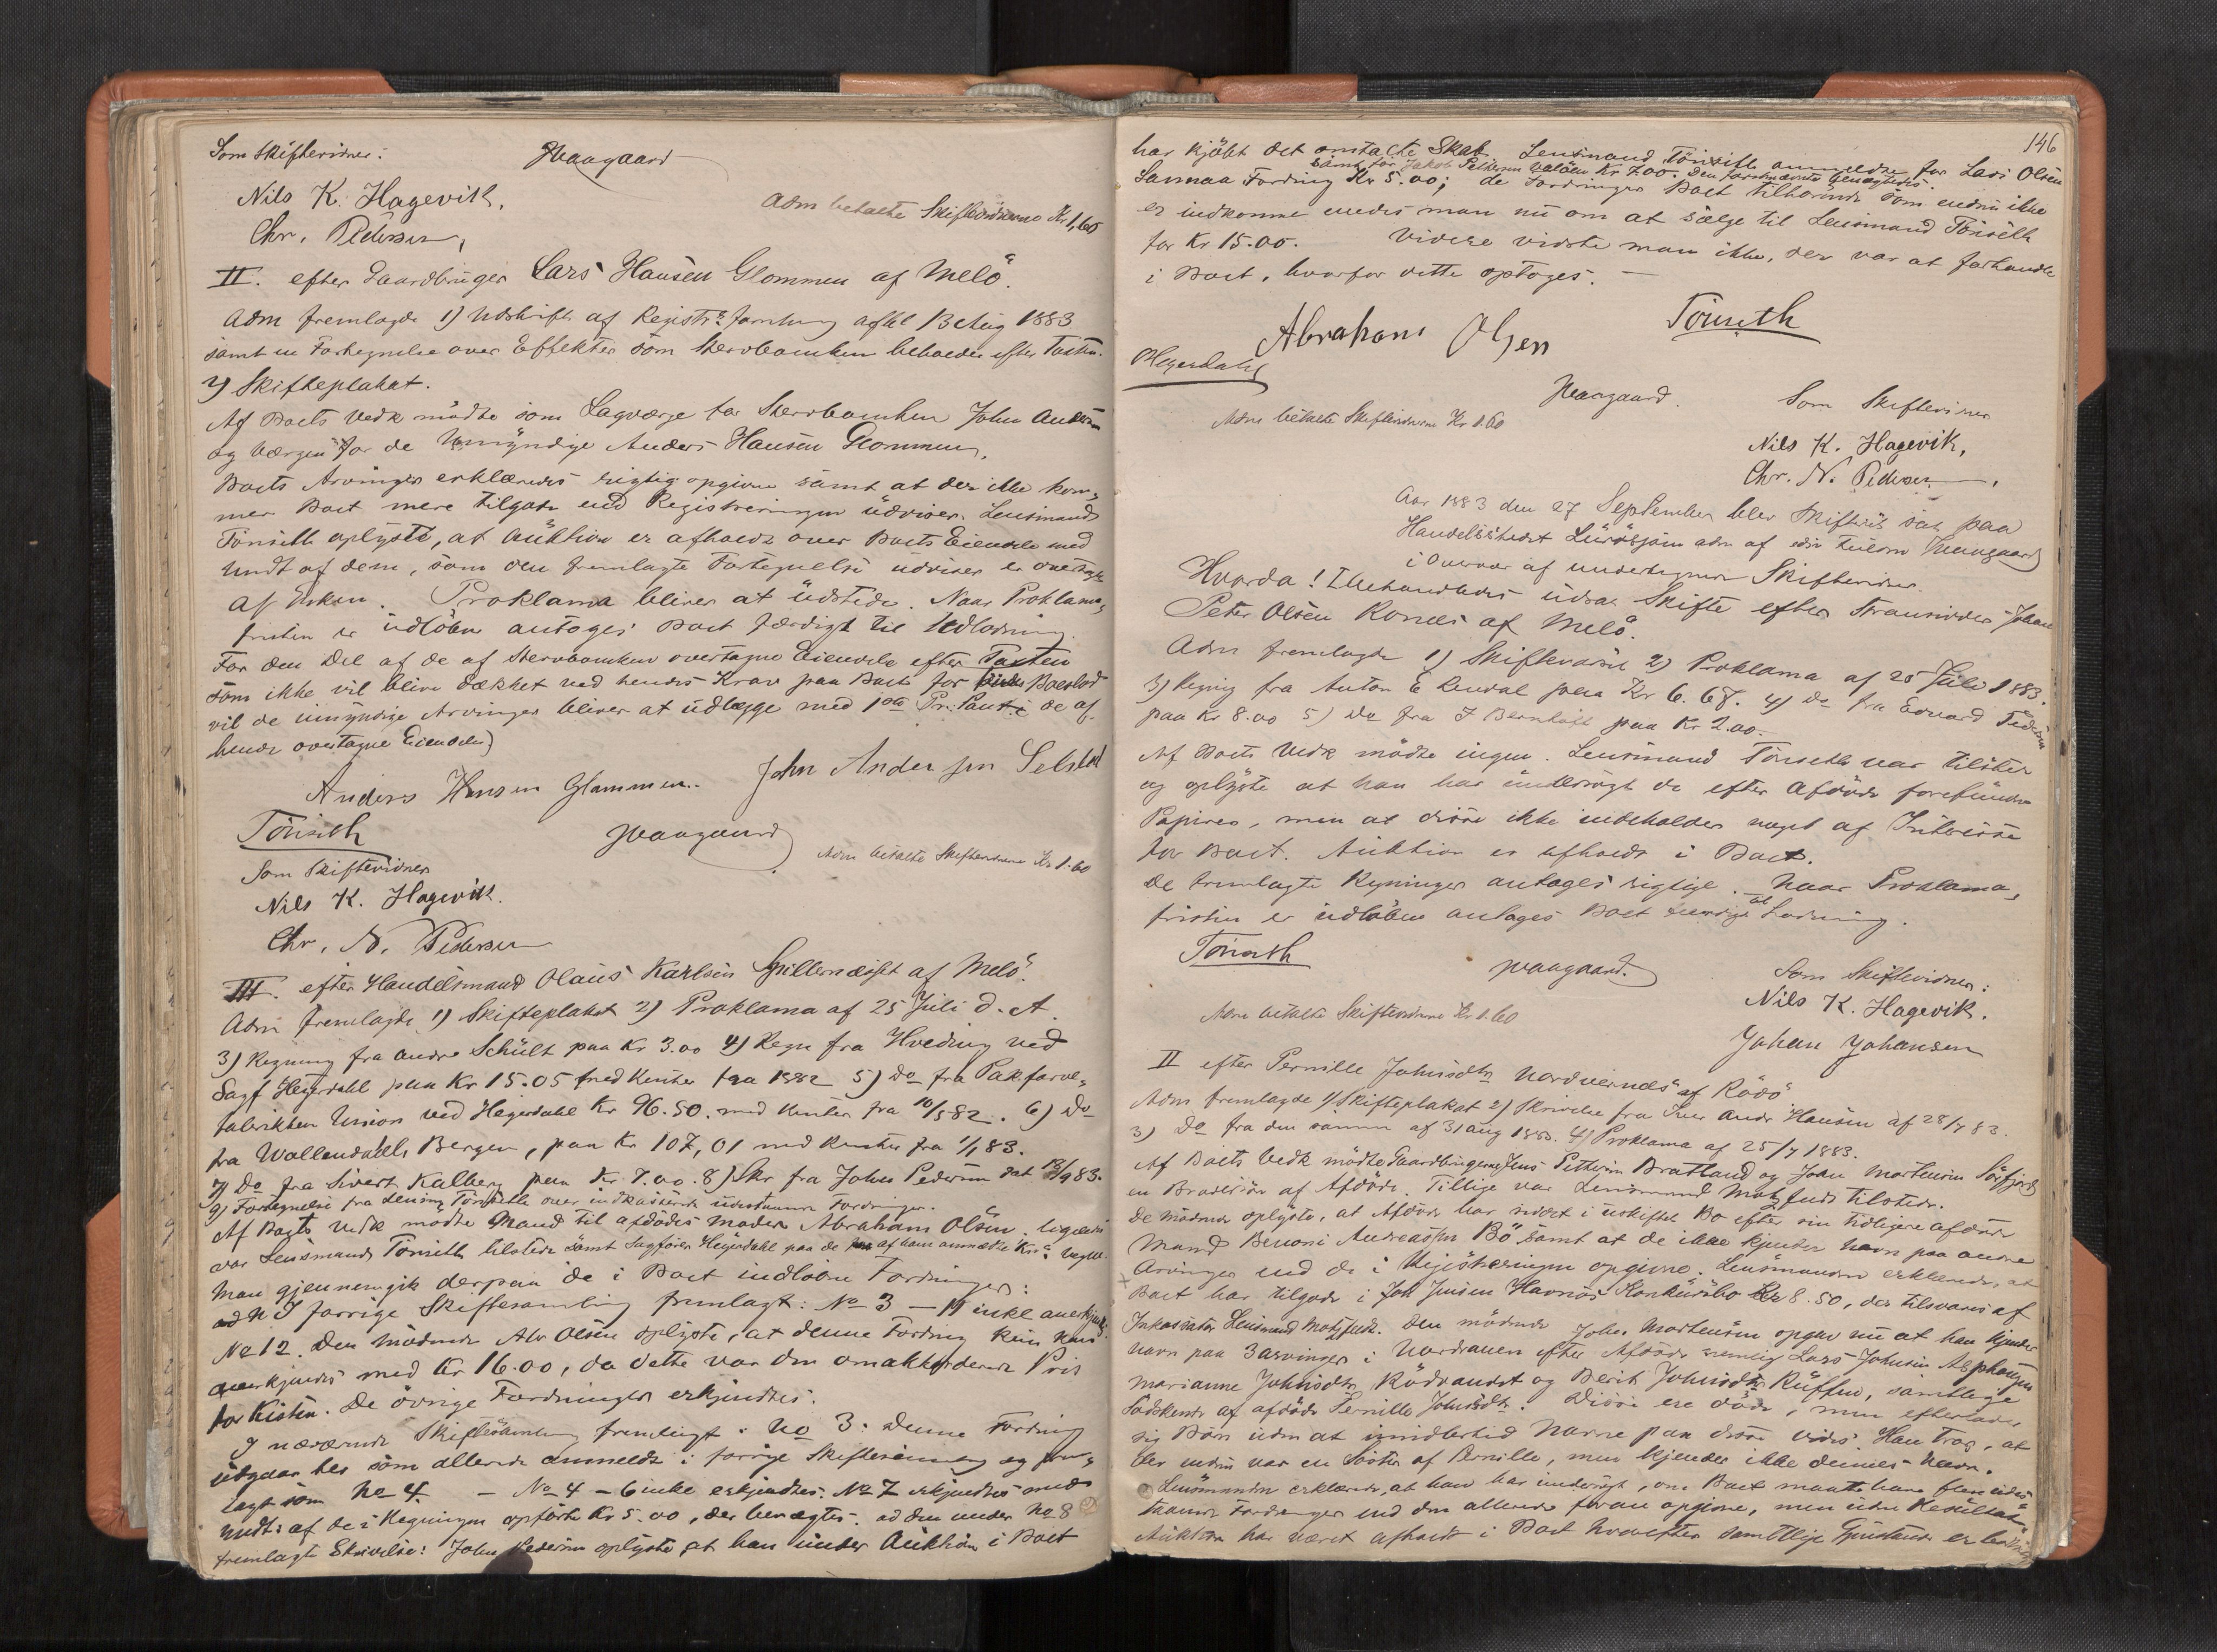 Som Skiftevidner:
Haagaard
Nils K. Hagevik.
Adm betalte Skiftevidnerne Kr 1,60
Chr. Pedersen,
II. efter Gaardbruger Lars Hansen Glommen af Melö.
Adm fremlagde 1) Udskrift af Registr.s forretning afhl 13 Aug 1883
samt en Fortegnelse over Effekter som Stervboenken beholder efter Taxten.
2) Skifteplakat.
Af Boets Vedk mödte som Lagværge for Stervboenken John Andersen
og Værgen for de Umyndige Anders Hansen Glommen.
Boets Arvinger erklæredes rigtig opgivne samt at der ikke kom-
mer Boet mere tilgode end Registreringen udviser. Lensmand
Tönseth oplyste, at Auktion er afholdt over Boets Eiendele med
Undt af dem, som den fremlagte Fortegnelse udviser er overtagne
af Enken. Proklama bliver at udstede. Naar Proklama-
fristen er udlöben antages Boet færdigt til Udlodning.
For den Del af de af Stervboenken overtagne Eiendele efter Taxten
som ikke vil blive dækket ved hendes Krav paa Boet for Boeslod
vil de umyndige Arvinger bliver at udlægge med 1ste Pr. Pant i de af
hende overtagne Eiendele)
Anders Hansen Glammen. John Andersen Selstad
Tönseth
Haagaard
Adm betalte Skiftevidnerne Kr 1.60
Som Skiftevidner
Nils K. Hagevik.
Chr. N. Pedersen
III. efter Handelsmand Olaus Karlsen Spillernæsset af Melö.
Adm fremlagde 1) Skifteplakat 2) Proklama af 25 Juli d. A.
3) Regning fra Andre Schult paa Kr 3.00 4) Regn fra Hveding ved
Sagf Heyerdahl paa Kr 15.05 med Renter fra 1882 5) Do fra Pak.farve-
fabrikken Union ved Heyerdahl Kr 96.50. med Renter fra 10/5 82. 6) Do
fra Wallendahl, Bergen, paa Kr 107,01 med Renter fra 1/1 83.
7) Do fra Sivert Kalberg paa Kr 7.00. 8) Skr fra Johs Pedersen dat 13/9 83.
9) Fortegnelse fra Lensm Tönseth over indkasserede udestaaende Fordringer.
Af Boets Vedk mödte Mand til afdödes Moder Abraham Olsen. ligeledes
var Lensmand Tönseth tilstede samt Sagförer Heyerdahl paa de af ham anmeldte Kr.s Vegne.
Man gjennemgik derpaa de i Boet indlöbne Fordringer:
ad No I forrige Skiftesamling fremlagt: No 3 - 11 inkl anerkjendt.
No 12. Den mödende Abr Olsen oplyste, at denne Fordring kun kan
anerkjendes med Kr 16.00, da dette var den omakkorderede Pris
for Kisten. De övrige Fordringer erkjendtes.
I nærværende Skiftesamling fremlagt: No 3: Denne Fordring
udgaar her som allerede anmeldt i forrige Skiftesamling og frem-
lagt som No 4. - No 4 - 6 inkl erkjendtes. No 7 erkjendtes med
Undt: af de i Regningen opförte Kr 5.00, der benægtes. ad den under No 8
fremlagte Skrivelse: Johs Pedersen oplyste at han under Auktion i Boet
146
har kjöbt det omtalte Skab. Lensmand Tönseth anmeldte for Lars Olsen
samt for Jakob Pettersen Valöen Kr 7.00. Den förstnævnte benægtedes.
Sannaa Fordring Kr 5.00; de Fordringer Boet tilhörende som endnu ikke
er indkomne enedes man nu om at sælge til Lensmand Tönseth
for Kr 15.00. Videre vidste man ikke, der var at forhandle
i Boet, hvorfor dette optoges. —
Abraham Olsen
Tönseth
Heyerdahl
Haagaard.
Som Skiftevidner
Adm betalte Skiftevidnerne Kr 1.60
Nils K. Hagevik,
Chr. N. Pedersen.
Aar 1883 den 27 September blev Skifteret sat paa
Handelsstedet Luröstjöen adm af edsv Fuldm Haagaard
i Overvær af undertegnede Skiftevidner
Hvorda! I Behandledes udsat Skifte efter Strandsidder Johan
Peter Olsen Kones af Melö.
Adm fremlagde 1) Skiftevarsel 2) Proklama af 25 Juli 1883.
3) Regning fra Anton E Rendal paa Kr 6.68. 4) Do fra Edvard Pedersen
paa Kr 8.00 5) Do fra J Bernhoft paa Kr 2.00.
Af Boets Vedk mödte ingen. Lensmand Tönseth var tilstede
og oplyste at han har undersögt de efter Afdöde forefundne
Papirer, men at disse ikke indeholder noget af Interesse
for Boet. Auktion er afholdt i Boet.
De fremlagte Regninger antages rigtige. — Naar Proklama-
fristen er udlöben antages Boet færdigt til Lodning.
Tönseth
Haagaard.
Som Skiftevidner:
Adm betalte Skiftevidnerne Kr 1.60
Nils K. Hagevik.
Johan Johansen
II efter Pernille Johnsdtr Nordvernes af Rödö
Adm fremlagde 1) Skifteplakat 2) Skrivelse fra Andr Hansen af 28/7 83.
3) Do fra den samme af 31 Aug 1883. 4) Proklama af 25/7 1883.
Af Boets Vedk mödte Gaardbrugerne Jens Pettersen Bratland og Johan Mortensen Sörfjord
en Brodersön af Afdöde. Tillige var Lensmand Motzfeldt tilstede.
De mödende oplyste, at Afdöde har siddet i uskiftet Bo efter sin tidligere afdöde
Mand Benoni Andreassen Bö samt at de ikke kjender Navn paa andre
Arvinger end de i Registreringen opgivne. Lensmanden erklærede, at
Boet har tilgode i Joh Jensen Havnös Konkursbo Kr 8.50, der tilsvares af
Inkassator Lensmand Motzfeldt. Den mödende Johs Mortensen opgav nu at han kjender
Navn paa 3 Arvinger i Nordranen efter Afdöde nemlig Lars Johnsen Alsphaugen
Marianne Johnsdtr Rödvandet og Berit Johnsdtr Ruffen, samtlige
Södskende af afdöde Pernille Johnsdtr. Disse ere döde, men efterlader
sig Börn uden at imidlertid Navne paa disse vides. Han tror, at
der endnu var en Söster af Pernille, men kjender ikke dennes Navn.
Lensmanden erklærede, at han har undersögt, om Boet maatte have flere udes-
taaende Fordringer end den allerede foran opgivne, men uden Resultat.
Auktion har været afholdt i Boet hvorefter samtlige Gjenstande er